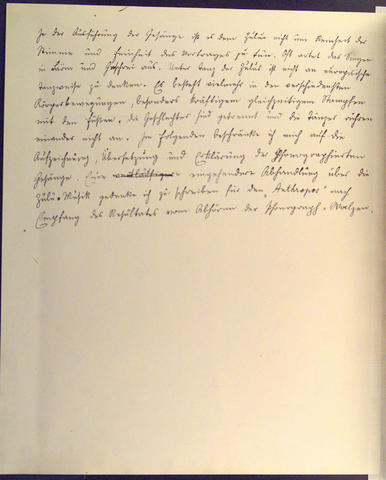 In der Ausführung der Gesänge ist es dem Zulu nicht um Reinheit der
Stimme und Feinheit des Vortrages zu tun. Oft artet das Singen
in Lärm und Geschrei aus. Unter Tanz der Zulus ist nicht an europäische
Tanzweise zu denken. Er besteht vielmehr in den verschiedensten
Körperbewegungen, besonders kräftigem gleichzeitigem Stampfen
mit den Füßen. Die Geschlechter sind getrennt und die Tänzer rühren
einander nicht an. Im Folgenden beschränke ich mich auf die
Aufzeichnung, Übersetzung und Erklärung der phonographierten
Gesänge. Eine eingehendere Abhandlung über die
Zulu-Musik gedenke ich zu schreiben für den "Anthropos" nach
Empfang des Resultates vom Abhören der Phonograph-Walzen.